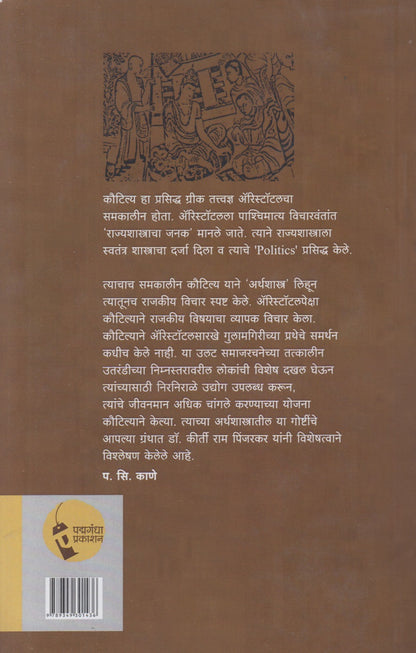 कौटिल्य हा प्रसिद्ध ग्रीक तत्त्वज्ञ ॲरिस्टॉटलचा
समकालीन होता. ॲरिस्टॉटलला पाश्चिमात्य विचारवंतांत
'राज्यशास्त्राचा जनक' मानले जाते. त्याने राज्यशास्त्राला
स्वतंत्र शास्त्राचा दर्जा दिला व त्याचे 'Politics' प्रसिद्ध केले.
त्याचाच समकालीन कौटिल्य याने 'अर्थशास्त्र' लिहून
त्यातूनच राजकीय विचार स्पष्ट केले. ॲरिस्टॉटलपेक्षा
कौटिल्याने राजकीय विषयाचा व्यापक विचार केला.
कौटिल्याने ॲरिस्टॉटलसारखे गुलामगिरीच्या प्रथेचे समर्थन
कधीच केले नाही. या उलट समाजरचनेच्या तत्कालीन
उतरंडीच्या निम्नस्तरावरील लोकांची विशेष दखल घेऊन
त्यांच्यासाठी निरनिराळे उद्योग उपलब्ध करून,
त्यांचे जीवनमान अधिक चांगले करण्याच्या योजना
कौटिल्याने केल्या. त्याच्या अर्थशास्त्रातील या गोष्टींचे
आपल्या ग्रंथात डॉ. कीर्ती राम पिंजरकर यांनी विशेषत्वाने
विश्लेषण केलेले आहे.
प. सि. काणे
पद्मगंधा
प्रकाशन
9789349501456